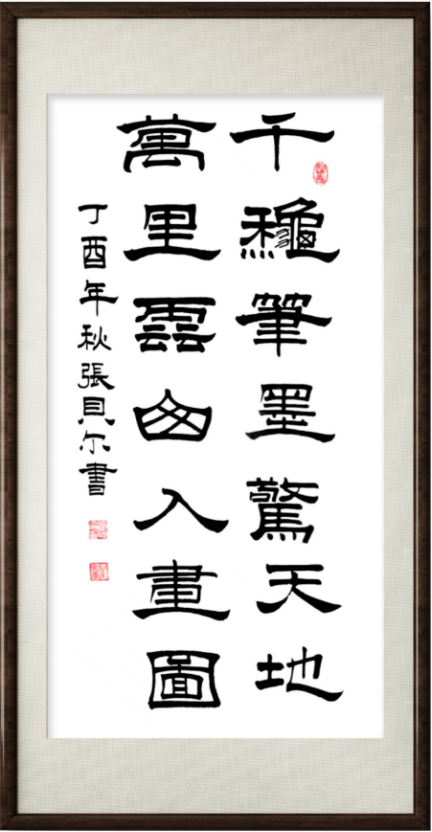 千龝筆墨驚天地
萬里雲山入畫圖
丁酉年秋張貝尔書